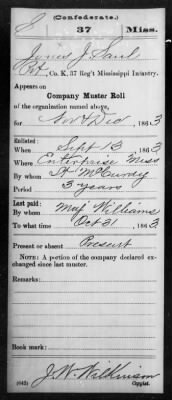 (Confederate.)
S 37 Miss.
James J. Saul
Pvt, Co. K, 37 Reg't Mississippi Infantry.
Appears on
Company Muster Roll
of the organization named above,
for Nov & Dec, 1863
Enlisted:
When Sept 13, 1863
Where Enterprise Miss
By whom Lt McCurdy
Period 3 years
Last paid:
By whom Maj Williams
To what time Oct 31, 1863
Present or absent Present
NOTE: A portion of the company declared exchanged since last muster.
Remarks:
Book mark:
J. W. Wilkinson
(642) Copyist.